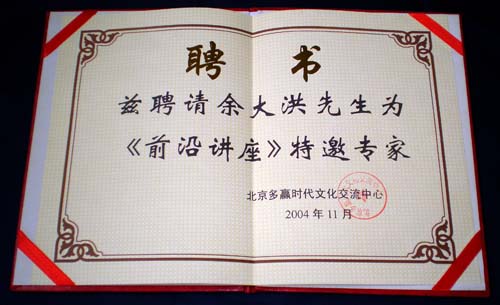 聘 书
兹聘请余大洪先生为
《前沿讲座》特邀专家
北京多赢时代文化交流中心
2004 年 11 月